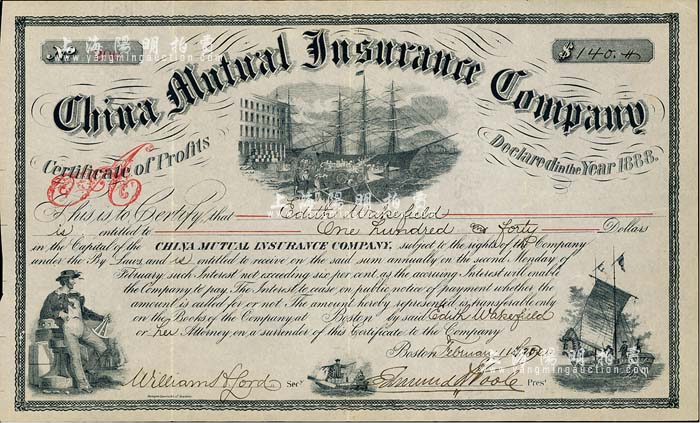 上海陽明拍賣
www.yangmingauction.com
上海陽明拍賣
www.yangmingauction.com
No
$ 140.
China Mutual Insurance Company
Certificate of Profits
Declared in the Year 1888.
A
上海陽明拍賣
www.yangmingauction.com
This is to Certify, that Edith Wakefield
is entitled to One Hundred & forty Dollars
in the Capital of the CHINA MUTUAL INSURANCE COMPANY, subject to the rights of the Company
under the By Laws and is entitled to receive on the said sum annually on the second Monday of
February such Interest not exceeding six per cent as the accruing Interest will enable
the Company to pay. The Interest to cease on public notice of payment whether the
amount is called for or not. The amount hereby represented is transferable only
on the Books of the Company at Boston by said Edith Wakefield
or her Attorney on a surrender of this Certificate to the Company
Boston February 11
Williams H Lord Secy
Edmund Poole Pres
上海陽明拍賣
www.yangmingauction.com
上海陽明拍賣
www.yangmingauction.com